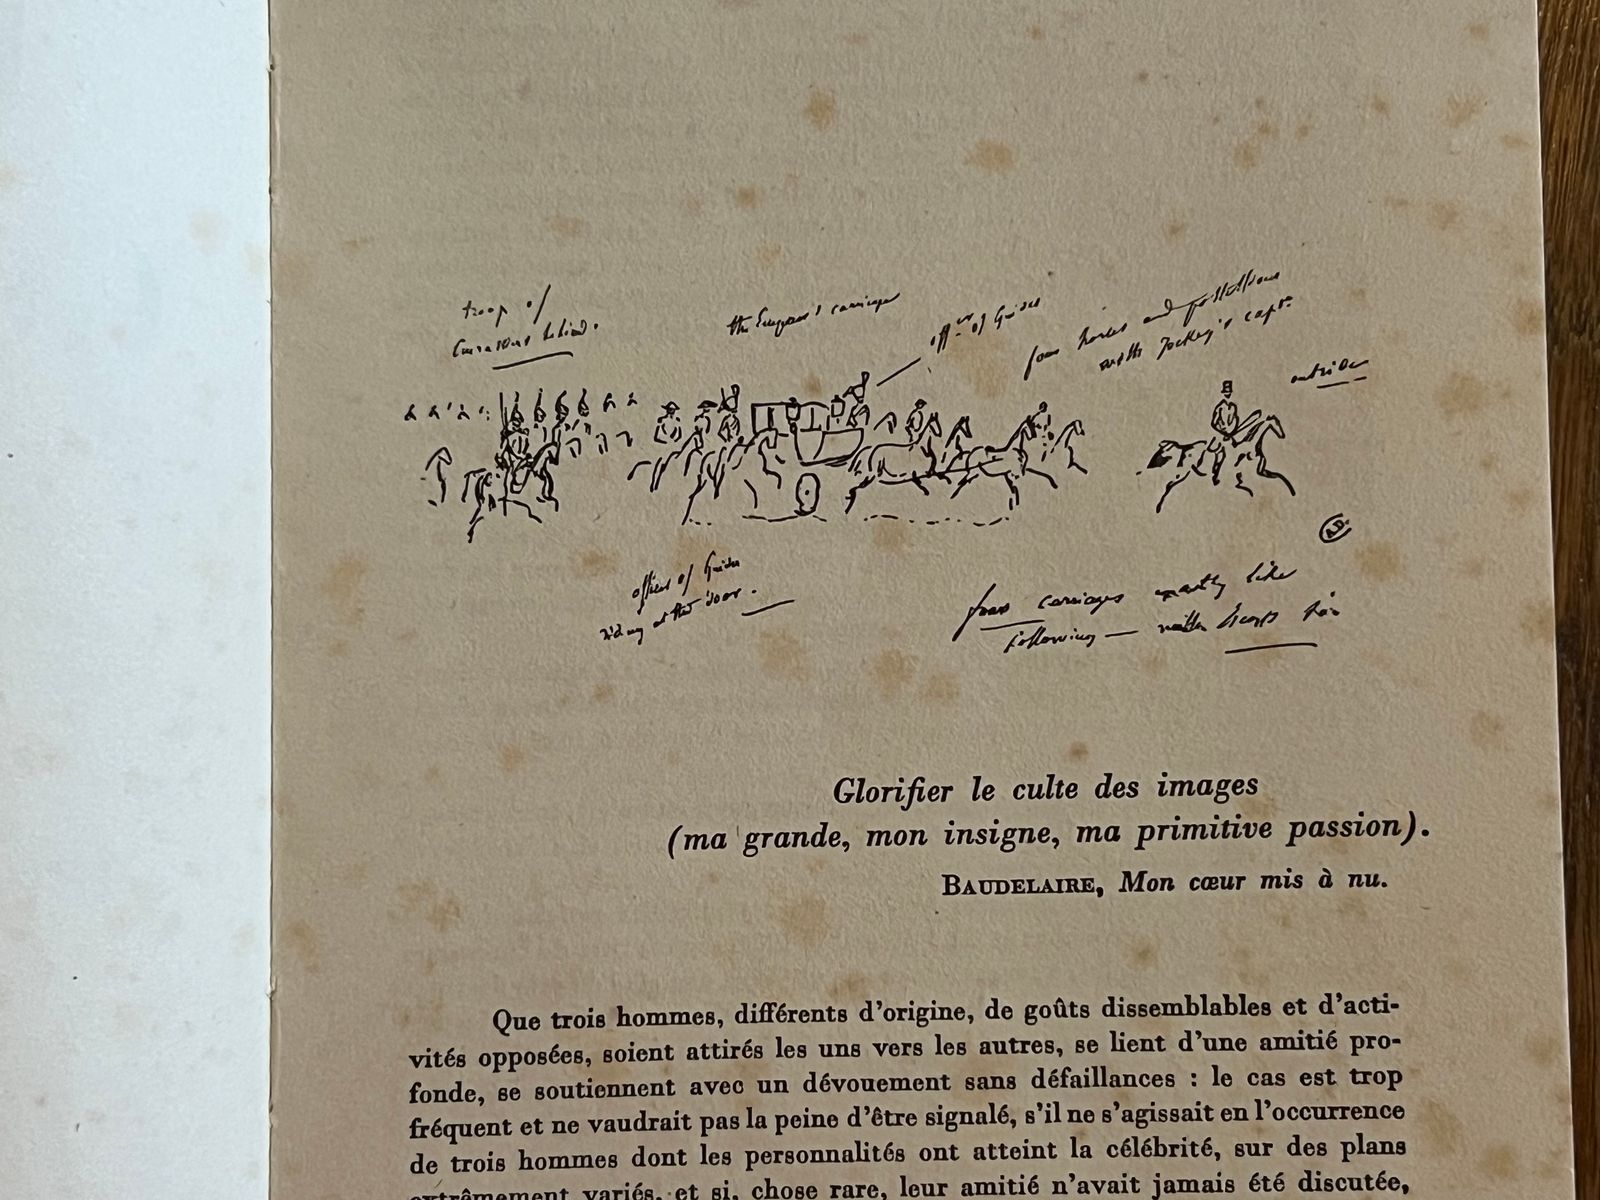 troop of
Cuirassiers behind.
the Emperor's carriage
offers of Guides
four horses and postillions
with jockey's caps.
outrider
officer of Guides
riding at the door.
four carriages exactly like
following —
Glorifier le culte des images
(ma grande, mon insigne, ma primitive passion).
BAUDELAIRE, Mon cœur mis à nu.
Que trois hommes, différents d'origine, de goûts dissemblables et d'acti-
vités opposées, soient attirés les uns vers les autres, se lient d'une amitié pro-
fonde, se soutiennent avec un dévouement sans défaillances : le cas est trop
fréquent et ne vaudrait pas la peine d'être signalé, s'il ne s'agissait en l'occurrence
de trois hommes dont les personnalités ont atteint la célébrité, sur des plans
extrêmement variés, et si, chose rare, leur amitié n'avait jamais été discutée,